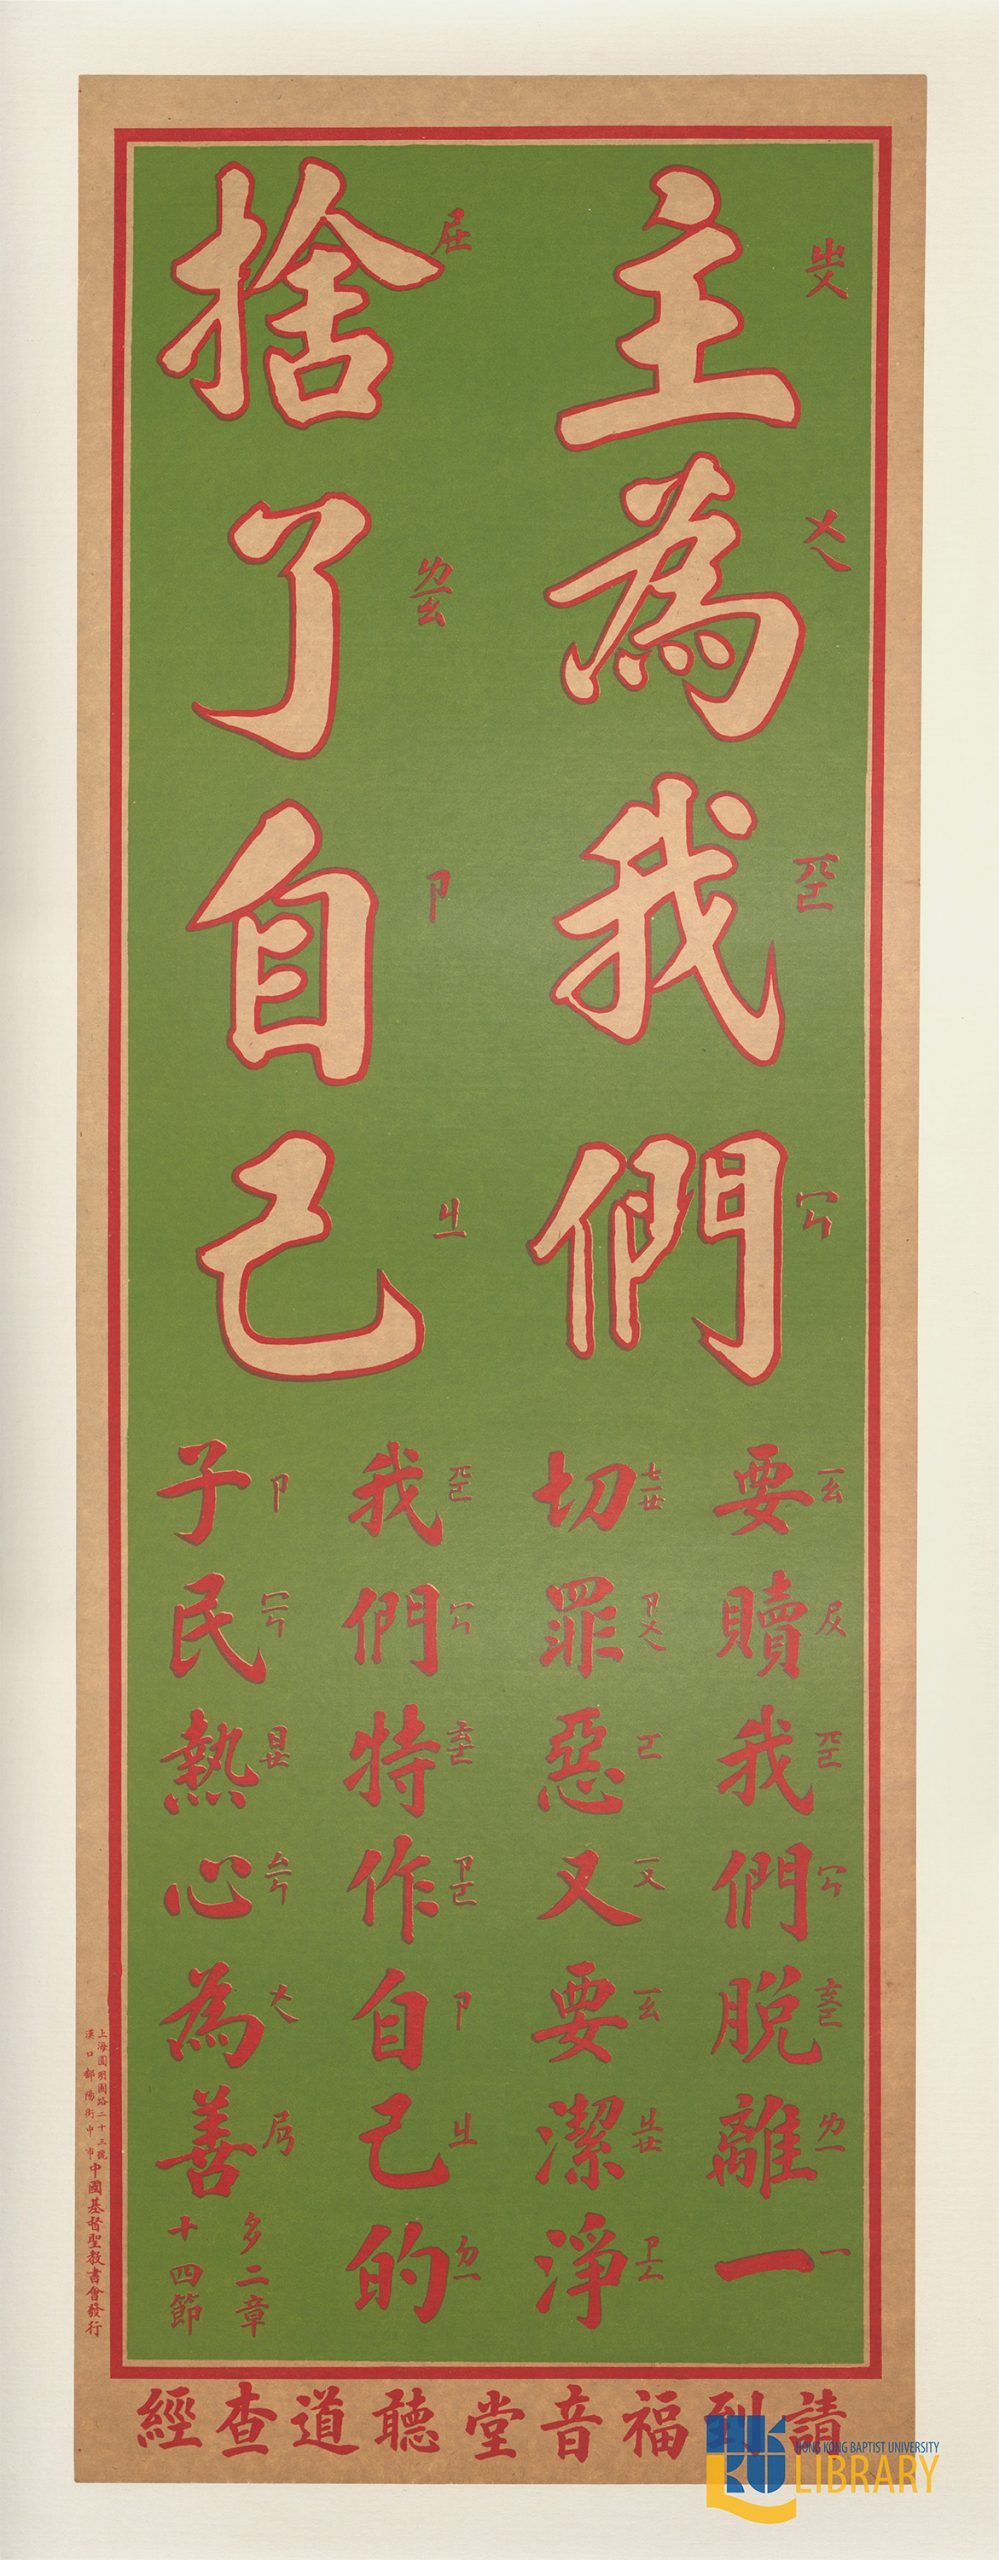 主為我們
捨了自己
要贖我們脫離一
切罪惡又要潔淨
我們特作自己的
子民熱心為善
多二章
十四節
請到福音堂聽道查經
上海圓明園路二十三號
漢口鄱陽街中市
中國基督聖教書會發行
HONG KONG BAPTIST UNIVERSITY
LIBRARY